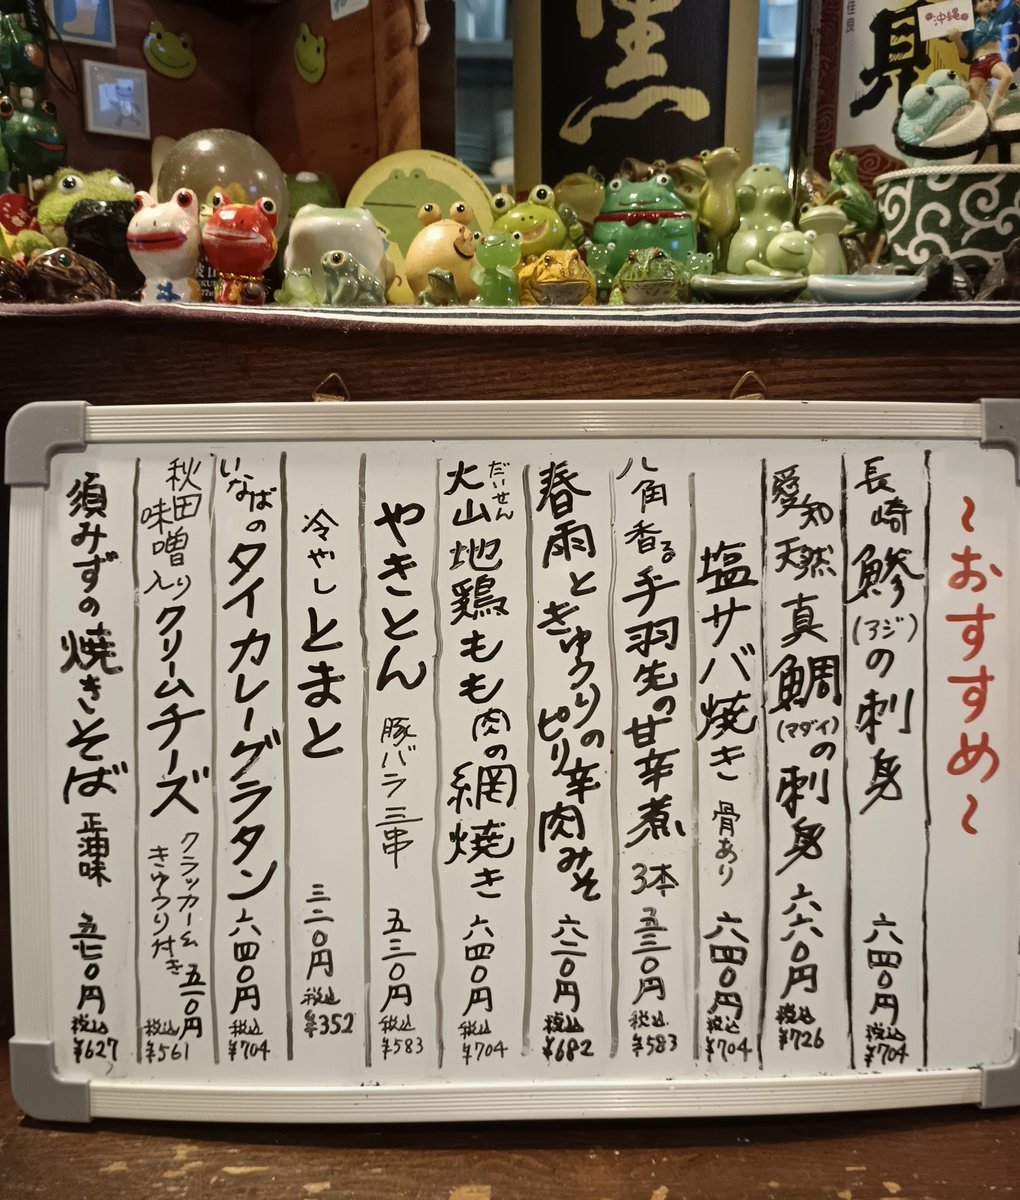 沖縄
黒
佳良
~おすすめ~
長崎 鯵(アジ)の刺身 六四〇円 税込 ¥704
愛知 天然 真鯛(マダイ)の刺身 六六〇円 税込 ¥726
塩サバ焼き 骨あり 六四〇円 税込 ¥704
八角香る手羽先の甘辛煮 3本 五三〇円 税込 ¥583
春雨ときゅうりのピリ辛肉みそ 六二〇円 税込 ¥682
大山地鶏もも肉の網焼き 六四〇円 税込 ¥704
だいせん
やきとん 豚バラ 三串 五三〇円 税込 ¥583
冷やしとまと 三二〇円 税込 ¥352
いなばのタイカレーグラタン 六四〇円 税込 ¥704
秋田味噌入りクリームチーズ クラッカー&きゅうり付き 五一〇円 税込 ¥561
須みずの焼きそば 正油味 五七〇円 税込 ¥627